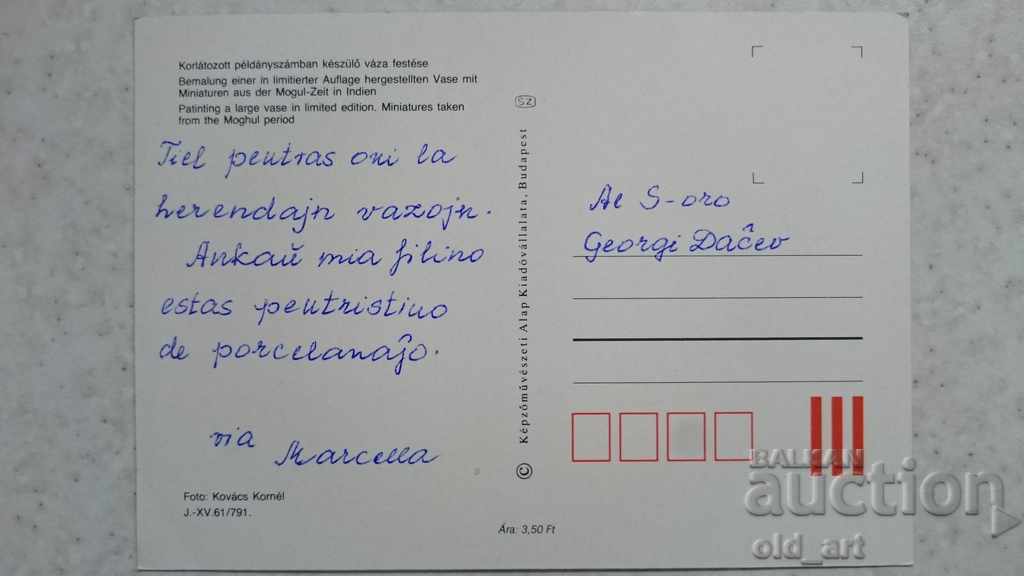 Korlátozott példányszámban készülő váza festése
Bemalung einer in limitierter Auflage hergestellten Vase mit
Miniaturen aus der Mogul-Zeit in Indien
Patinting a large vase in limited edition. Miniatures taken
from the Moghul period
Tiel pentras oni la
herendajn vazojn.
Ankaŭ mia filino
estas pentristino
de porcelanaĵo.
via
Marcella
Foto: Kovács Kornél
J.-XV.61/791.
SZ
© Képzőművészeti Alap Kiadóvállalata, Budapest
Ára: 3,50 Ft
Al S-oro
Georgi Daĉev
BALKAN
auction
old_art